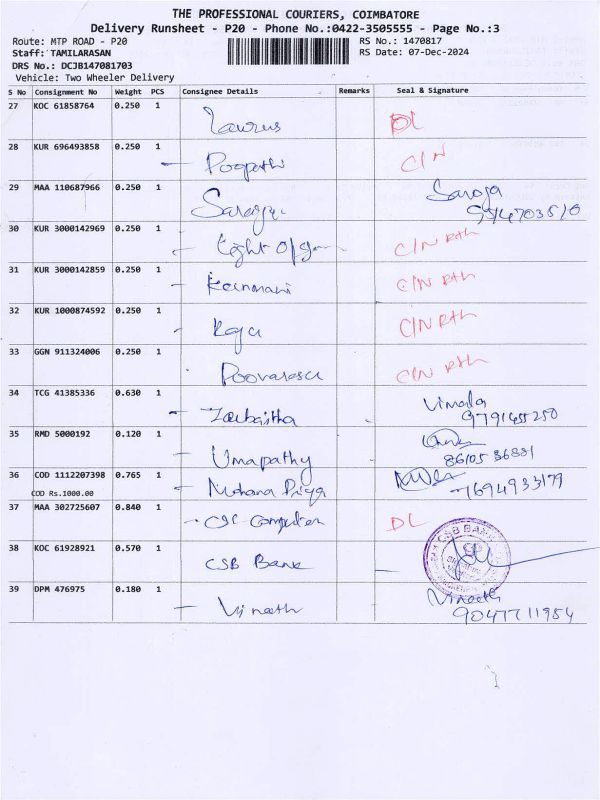 THE PROFESSIONAL COURIERS, COIMBATORE
Delivery Runsheet - P20 - Phone No.:0422-3505555 - Page No.:3
Route: MTP ROAD - P20 RS No.: 1470817
Staff: TAMILARASAN RS Date: 07-Dec-2024
DRS No.: DCJB147081703
Vehicle: Two Wheeler Delivery
S No Consignment No Weight PCS Consignee Details Remarks Seal & Signature
27 KOC 61858764 0.250 1 Taurus DL
28 KUR 696493858 0.250 1 Poopathi C/N
29 MAA 110687966 0.250 1 Saroja
30 KUR 3000142969 0.250 1 C/N
31 KUR 3000142859 0.250 1 C/N
32 KUR 1000874592 0.250 1 Raja C/N
33 GGN 911324006 0.250 1 Poovarasu C/N
34 TCG 41385336 0.630 1 Vimala
35 RMD 5000192 0.120 1 Umapathy
36 COD 1112207398 0.765 1 Mohana Priya
COD Rs.1000.00
37 MAA 302725607 0.840 1 CSC Computer DL
38 KOC 61928921 0.570 1 CSB Bank CSB BANK
39 DPM 476975 0.180 1 Vineeth Vineeth
9047711954